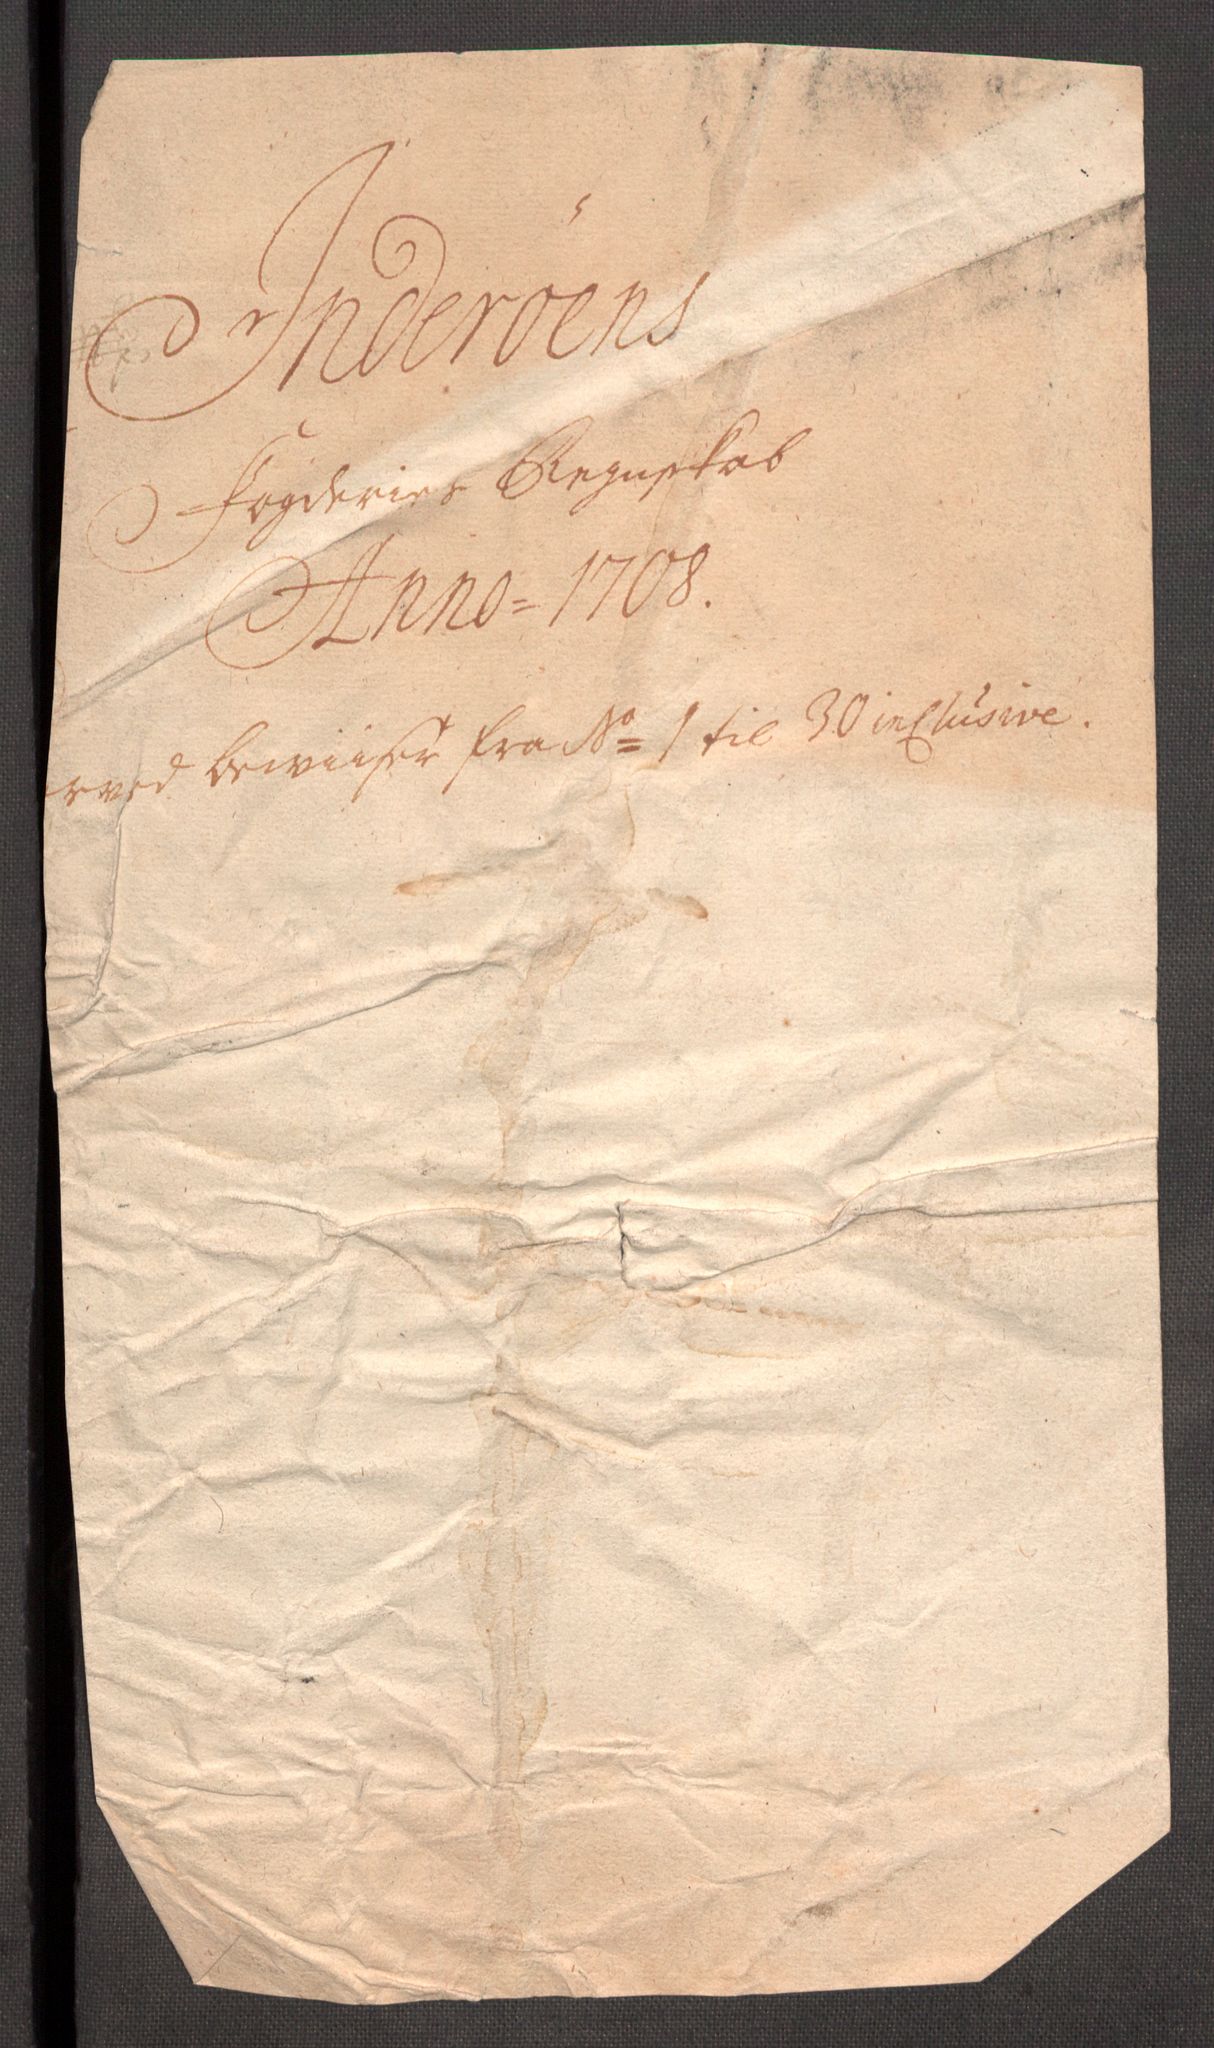 Inderöens
Fogderies Regnskab
Anno = 1708.
med bewiiser fra No = 1 til 30 inclusive.